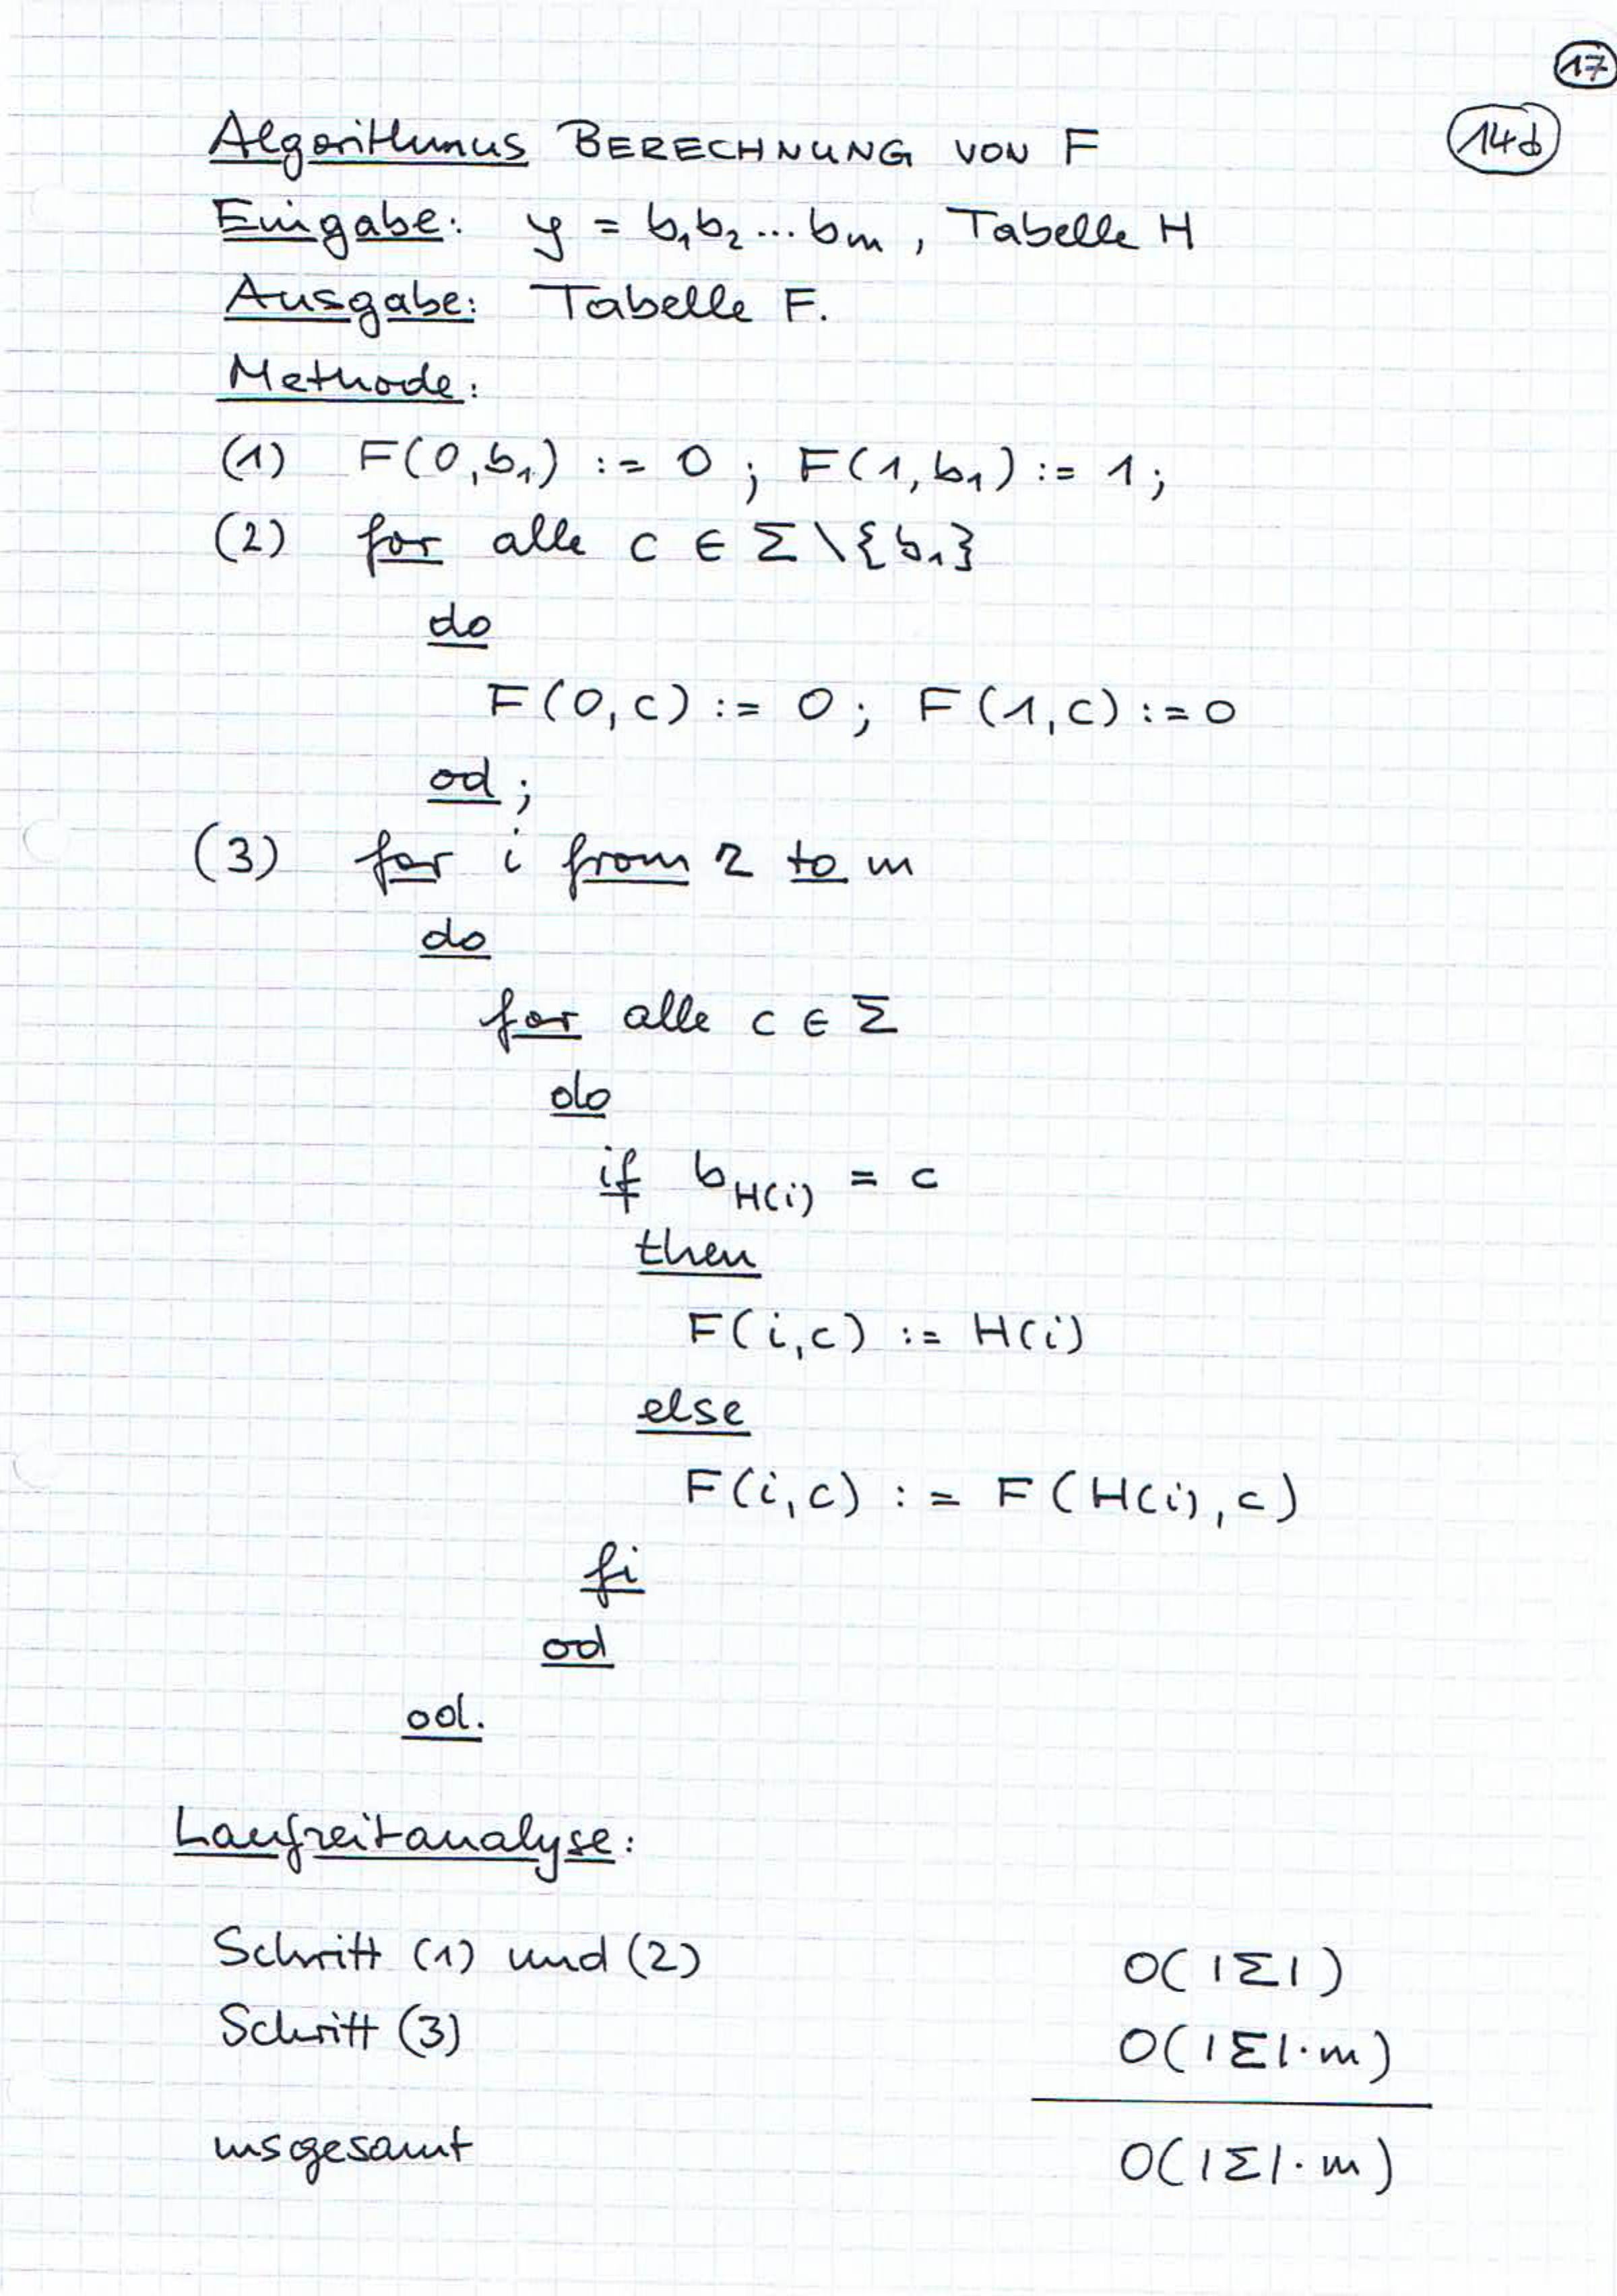 17
14d
Algorithmus BERECHNUNG VON F
Eingabe: y = b₁b₂...bₘ, Tabelle H
Ausgabe: Tabelle F.
Methode:
(1) F(0,b₁) := 0; F(1,b₁) := 1;
(2) for alle c ∈ Σ\{b₁}
do
F(0,c) := 0; F(1,c) := 0
od;
(3) for i from 2 to m
do
for alle c ∈ Σ
do
if b_H(i) = c
then
F(i,c) := H(i)
else
F(i,c) := F(H(i),c)
fi
od
od.
Laufzeitanalyse:
Schritt (1) und (2) O(|Σ|)
Schritt (3) O(|Σ|·m)
insgesamt O(|Σ|·m)